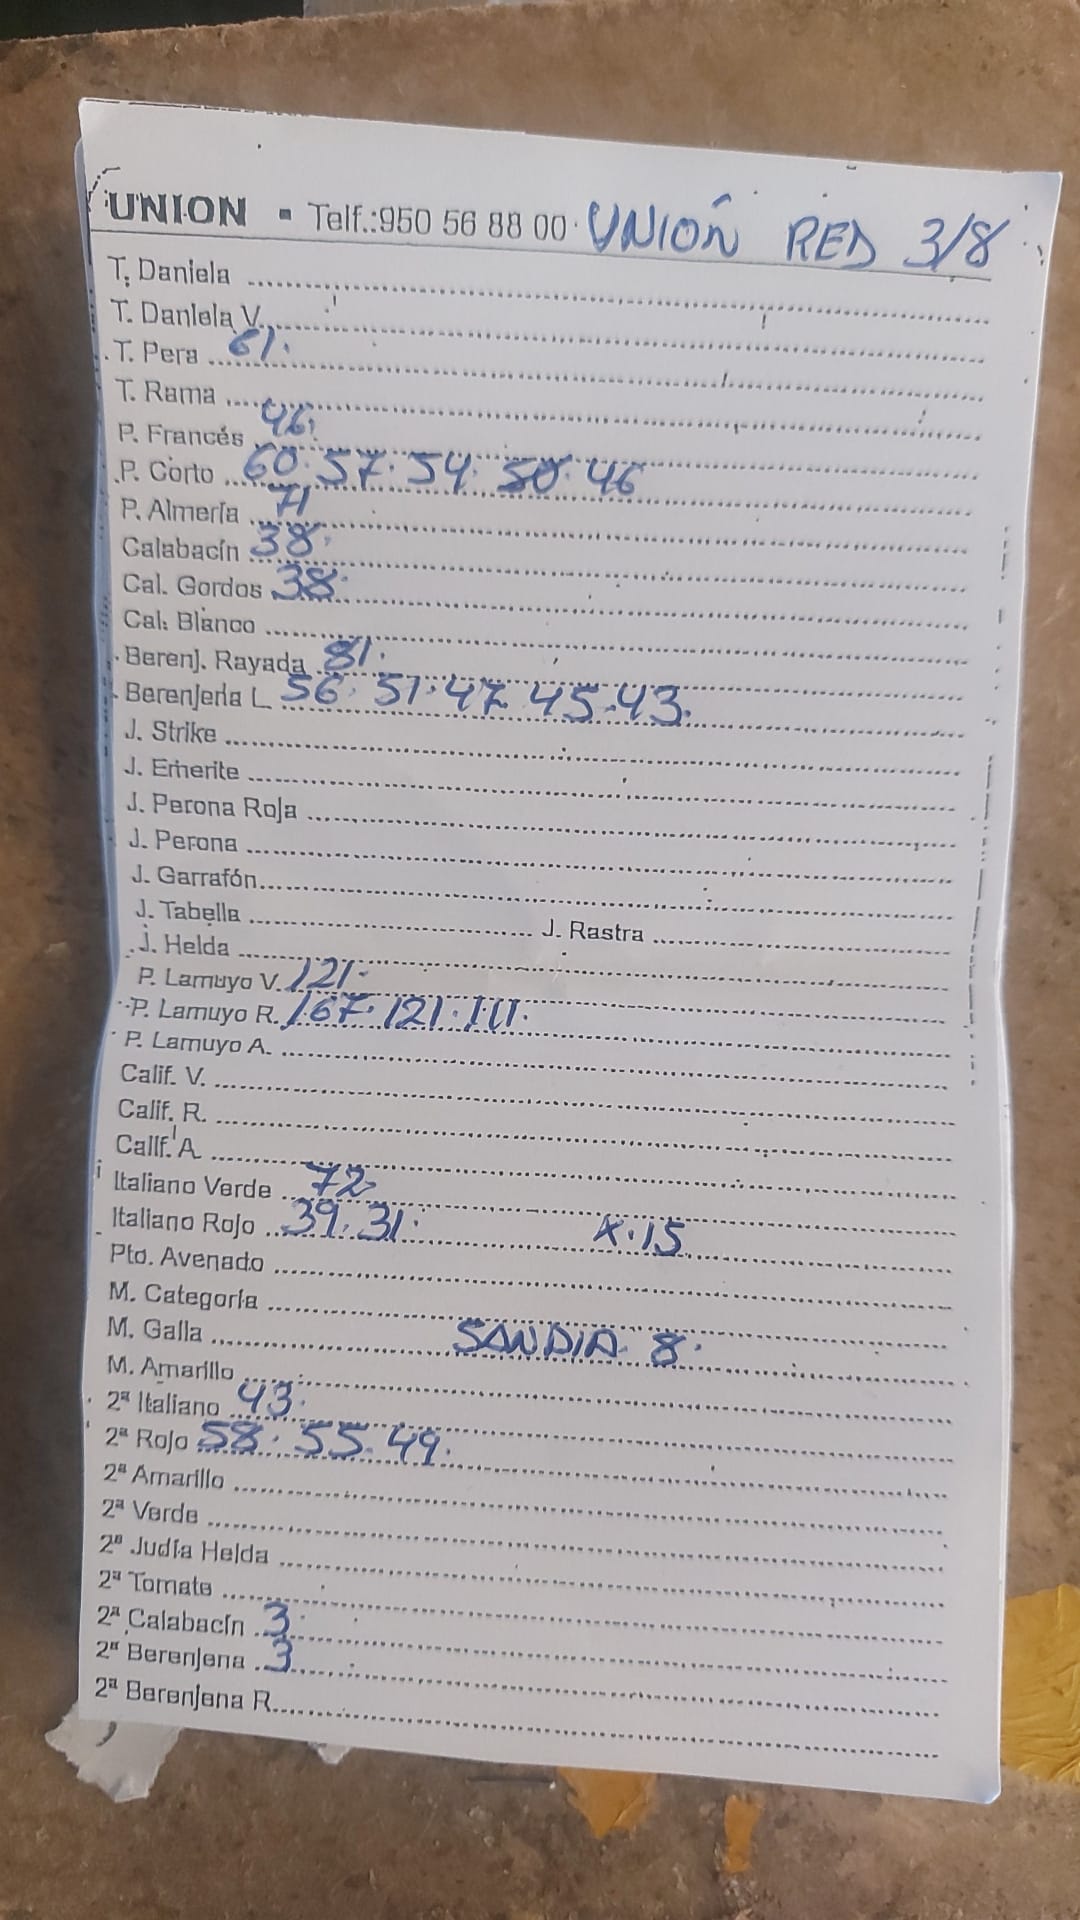 UNION - Telf.:950 56 88 00 UNIÓN RED 3/8
T. Daniela
T. Daniela V.
T. Pera 61.
T. Rama
P. Francés 46.
P. Corto 60. 57. 54. 50. 46
P. Almería 71
Calabacín 38.
Cal. Gordos 38.
Cal. Blanco
Berenj. Rayada 81.
Berenjena L 56. 51. 47. 45. 43.
J. Strike
J. Emerite
J. Perona Roja
J. Perona
J. Garrafón
J. Tabella J. Rastra
J. Helda
P. Lamuyo V. 121.
P. Lamuyo R. 167. 121. 111.
P. Lamuyo A.
Calif. V.
Calif. R.
Calif. A
Italiano Verde 72
Italiano Rojo 39. 31. X. 15
Pto. Avenado
M. Categoría
M. Galia SANDIA. 8.
M. Amarillo
2ª Italiano 43.
2ª Rojo 58. 55. 49.
2ª Amarillo
2ª Verde
2ª Judía Helda
2ª Tomate
2ª Calabacín 3.
2ª Berenjena 3
2ª Berenjena R.